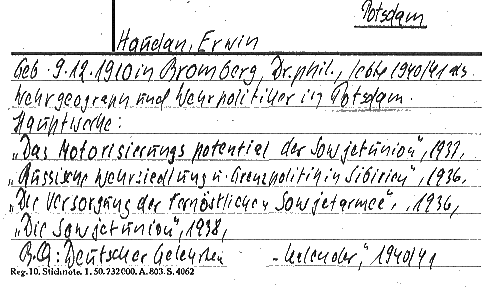 Potsdam
Haudan, Erwin
Geb. 9.12.1910 in Bromberg, Dr. phil., lebte 1940/41 als
Wehrgeograph und Wehrpolitiker in Potsdam.
Hauptwerke:
„Das Motorisierungspotential der Sowjetunion“, 1937,
„Russische Wehrsiedlung u. Grenzpolitik in Sibirien“, 1936,
„Die Versorgung der fernöstlichen Sowjetarmee“, 1936,
„Die Sowjetunion“, 1938,
B.Q.: Deutscher Gelehrten -Kalender, 1940/41
Reg. 10. Stichnote. 1. 50. 732000. A. 803. S. 4062